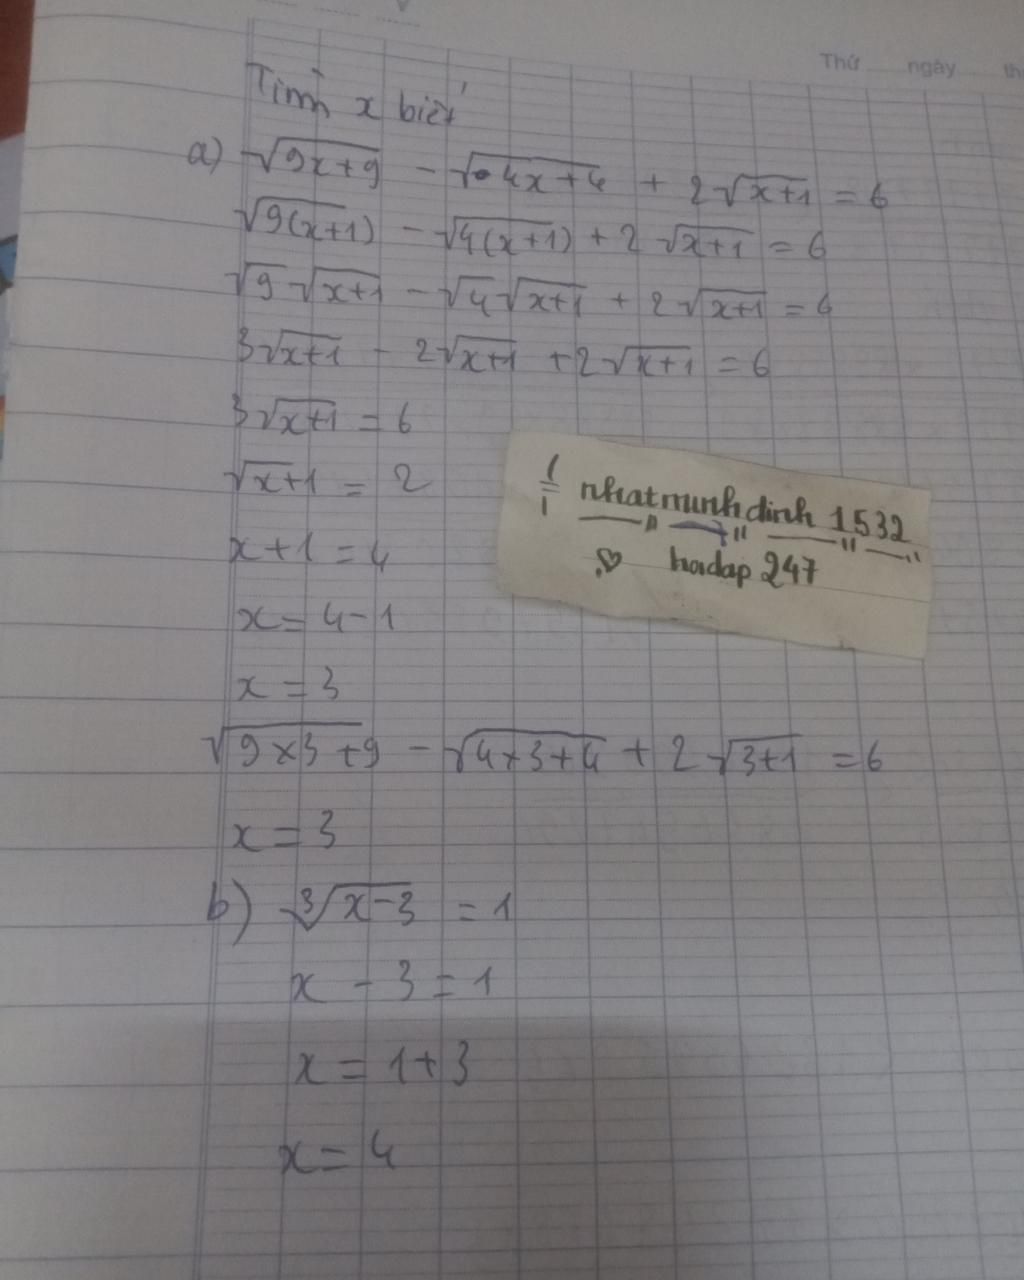 Thứ ngày th
Tìm x biết
a) √(9x+9) - √(4x+4) + 2√(x+1) = 6
√(9(x+1)) - √(4(x+1)) + 2√(x+1) = 6
√9 √(x+1) - √4 √(x+1) + 2√(x+1) = 6
3√(x+1) - 2√(x+1) + 2√(x+1) = 6
3√(x+1) = 6
√(x+1) = 2
x+1 = 4
x = 4-1
x = 3
√(9×3+9) - √(4×3+4) + 2√(3+1) = 6
x = 3
b) ∛(x-3) = 1
x - 3 = 1
x = 1+3
x = 4
nhatminhdinh 1532
hoidap 247